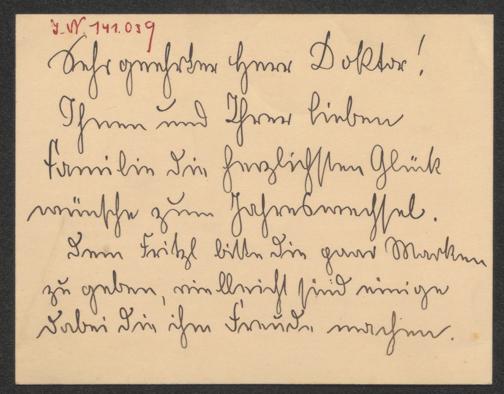 I.N. 141.039
Sehr geehrter Herr Doktor!
Ihnen und Ihrer lieben
Familie die herzlichsten Glück
wünsche zum Jahreswechsel.
Dem Fritzl bitte die paar Marken
zu geben, vielleicht sind einige
dabei die ihm Freude machen.